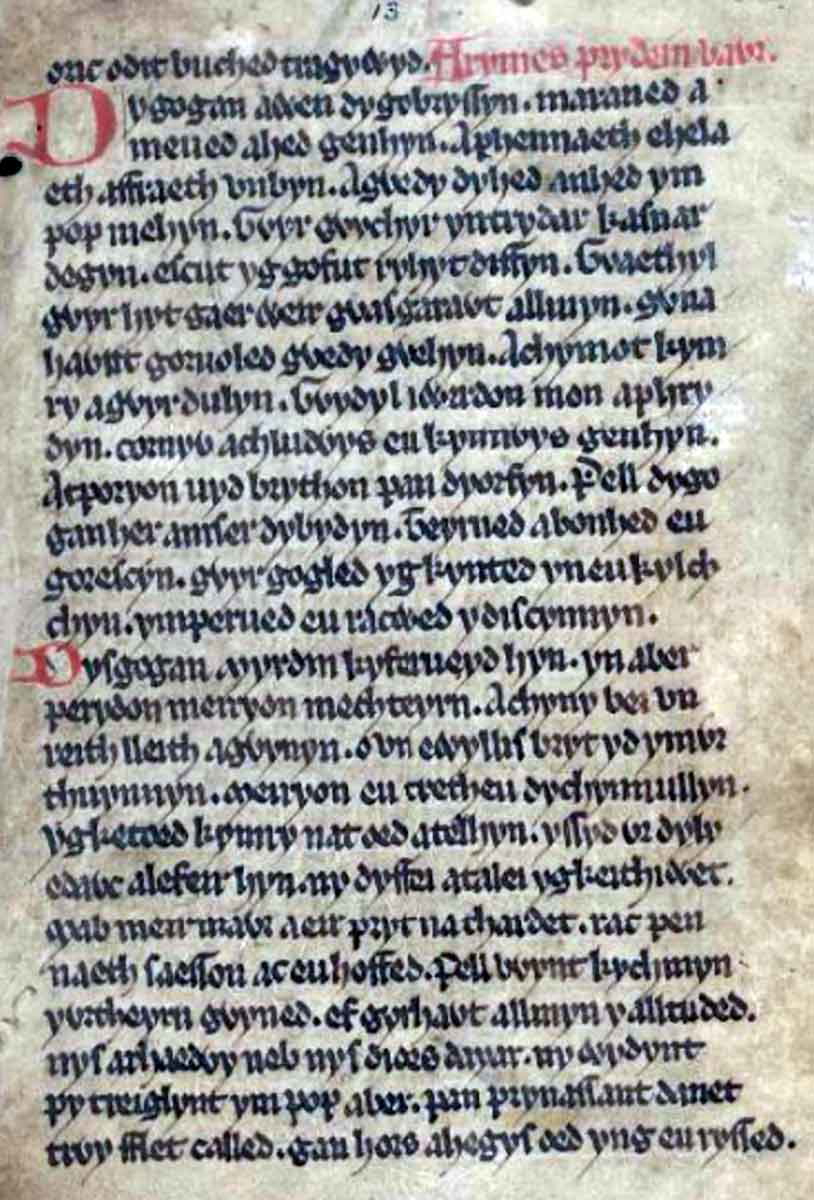 13
oric odit buched tragywyd. Arymes prydein vavr.
Dygogan awen dygobryssyn. maraned a
meued ahed genhyn. A phennaeth ehela
eth affraeth vnbyn. Agwedy dyhed anhed ym
pop mehyn. Gwyr gwychyr yntrydar kasnar
degyn. escut yg gofut ryhyt diffyn. Gwaethyl
gwyr hyt gaer weir gwasgarawt allmyn. gwna
hawnt goruoled gwedy gwehyn. Achymot kym
ry agwyr dulyn. Gwydyl iwerdon mon aphry
dyn. cornyw achludwys eu kynnwys genhyn.
Atporyon uyd brython pan dyorfyn. Pell dygo
ganher amser dybydyn. Teyrned abonhed eu
gorescyn. gwyr gogled yg kynted yn eu kylch
chyn. ymperued eu racwed ydiscynnyn.
Dysgogan myrdin kyferuyd hyn. yn aber
perydon meiryon mechteyrn. Achyny bei vn
reith lleith agwynyn. o vn ewyllis bryt yd ymwr
thuynnyn. meiryon eu tretheu dychynnullyn.
yg ketoed kymry nat oed atelhyn. yssyd wr dyly
edawc alefeir hyn. ny dyffei atalei ygkeithiwet.
mab meir mawr aeir pryt na thardet. rac pen
naeth saesson ac eu hoffed. Pell bwynt kychmyn
y vrtheyrn gwyned. ef gyrhawt allmyn y alltuded.
nys arhaedwy neb nys dioes dayar. ny wydynt
py treiglynt ym pop aber. pan prynassant danet
trwy fflet called. gan hors ahegys oed yng eu ryssed.